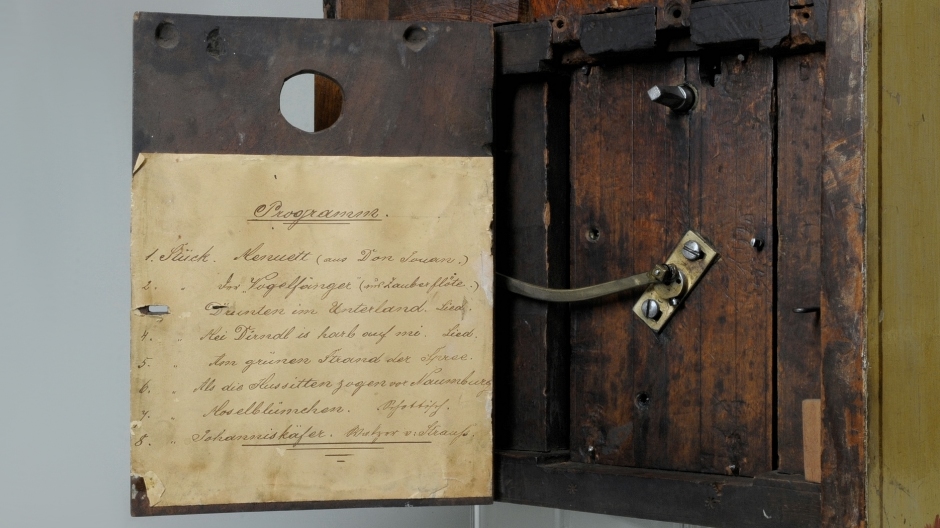 Programm.
1. Stück. Menuett (aus Don Jouan.)
2. " Der Vogelfänger (aus Zauberflöte.)
" Drunten im Unterland. Lied.
4. " Mei Dirndl is harb auf mi. Lied.
5 " Am grünen Strand der Spree.
6. " Als die Hussitten zogen vor Naumburg
7. " Moselblümchen. Schottisch.
8. " Johanniskäfer. Walzer v. Strauß.